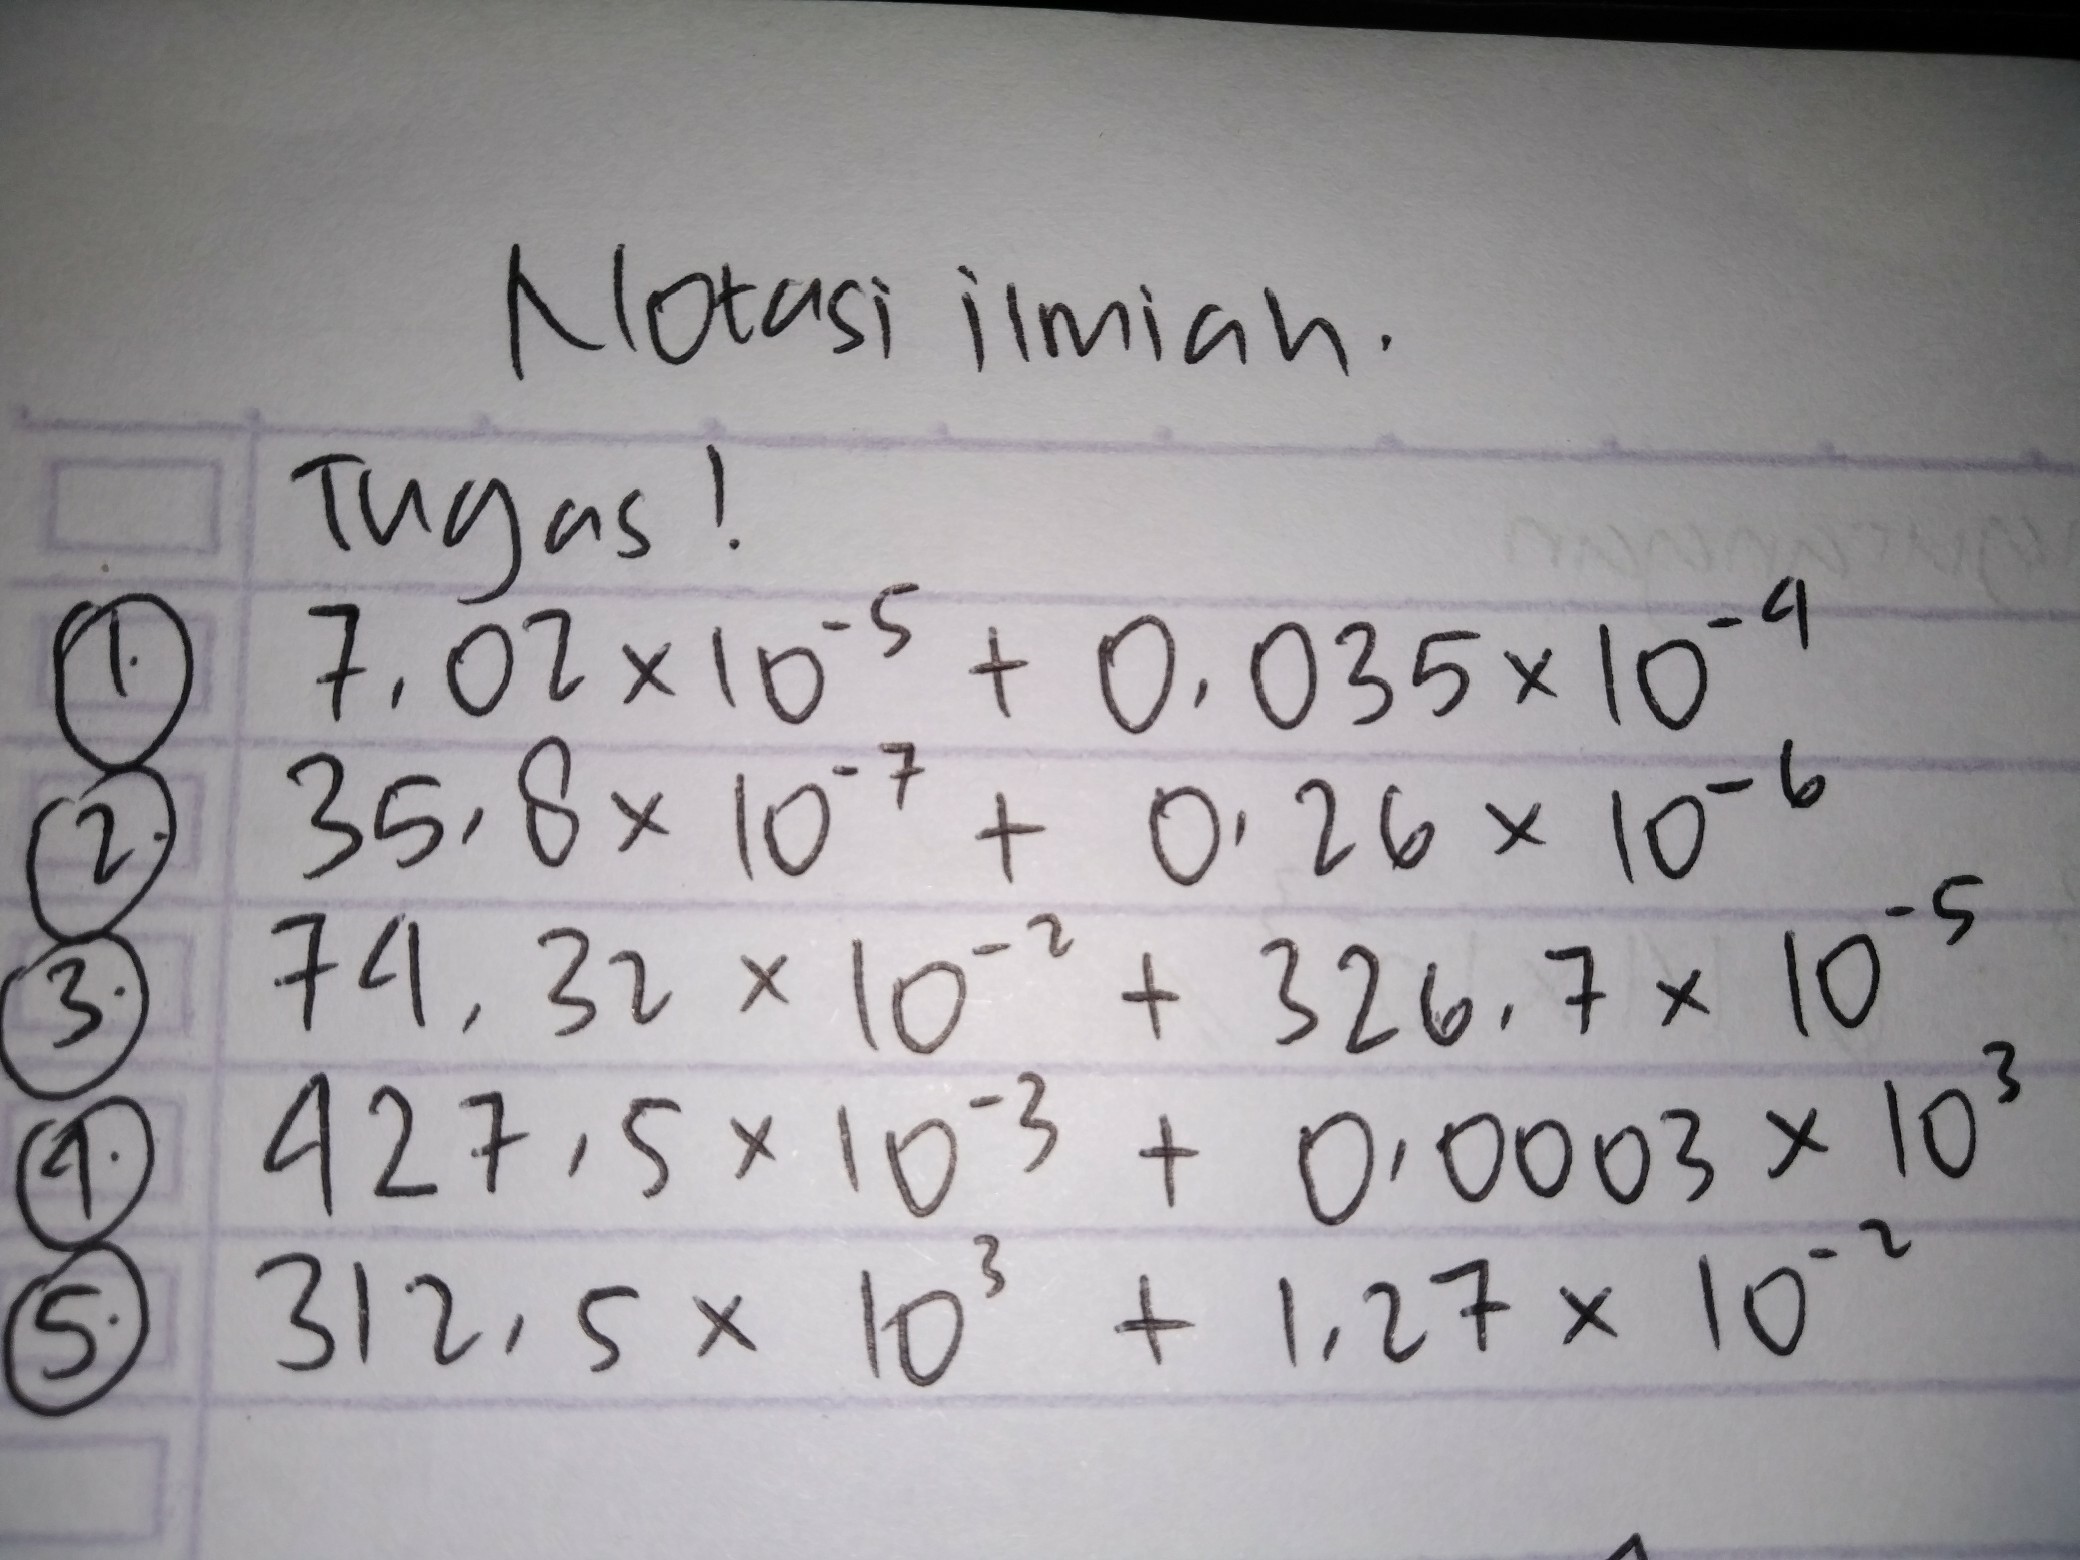 Notasi ilmiah.
Tugas!
1. 7,02 x 10⁻⁵ + 0,035 x 10⁻⁴
2. 35,8 x 10⁻⁷ + 0,26 x 10⁻⁶
3. 74,32 x 10⁻² + 326,7 x 10⁻⁵
4. 427,5 x 10⁻³ + 0,0003 x 10³
5. 312,5 x 10³ + 1,27 x 10⁻²